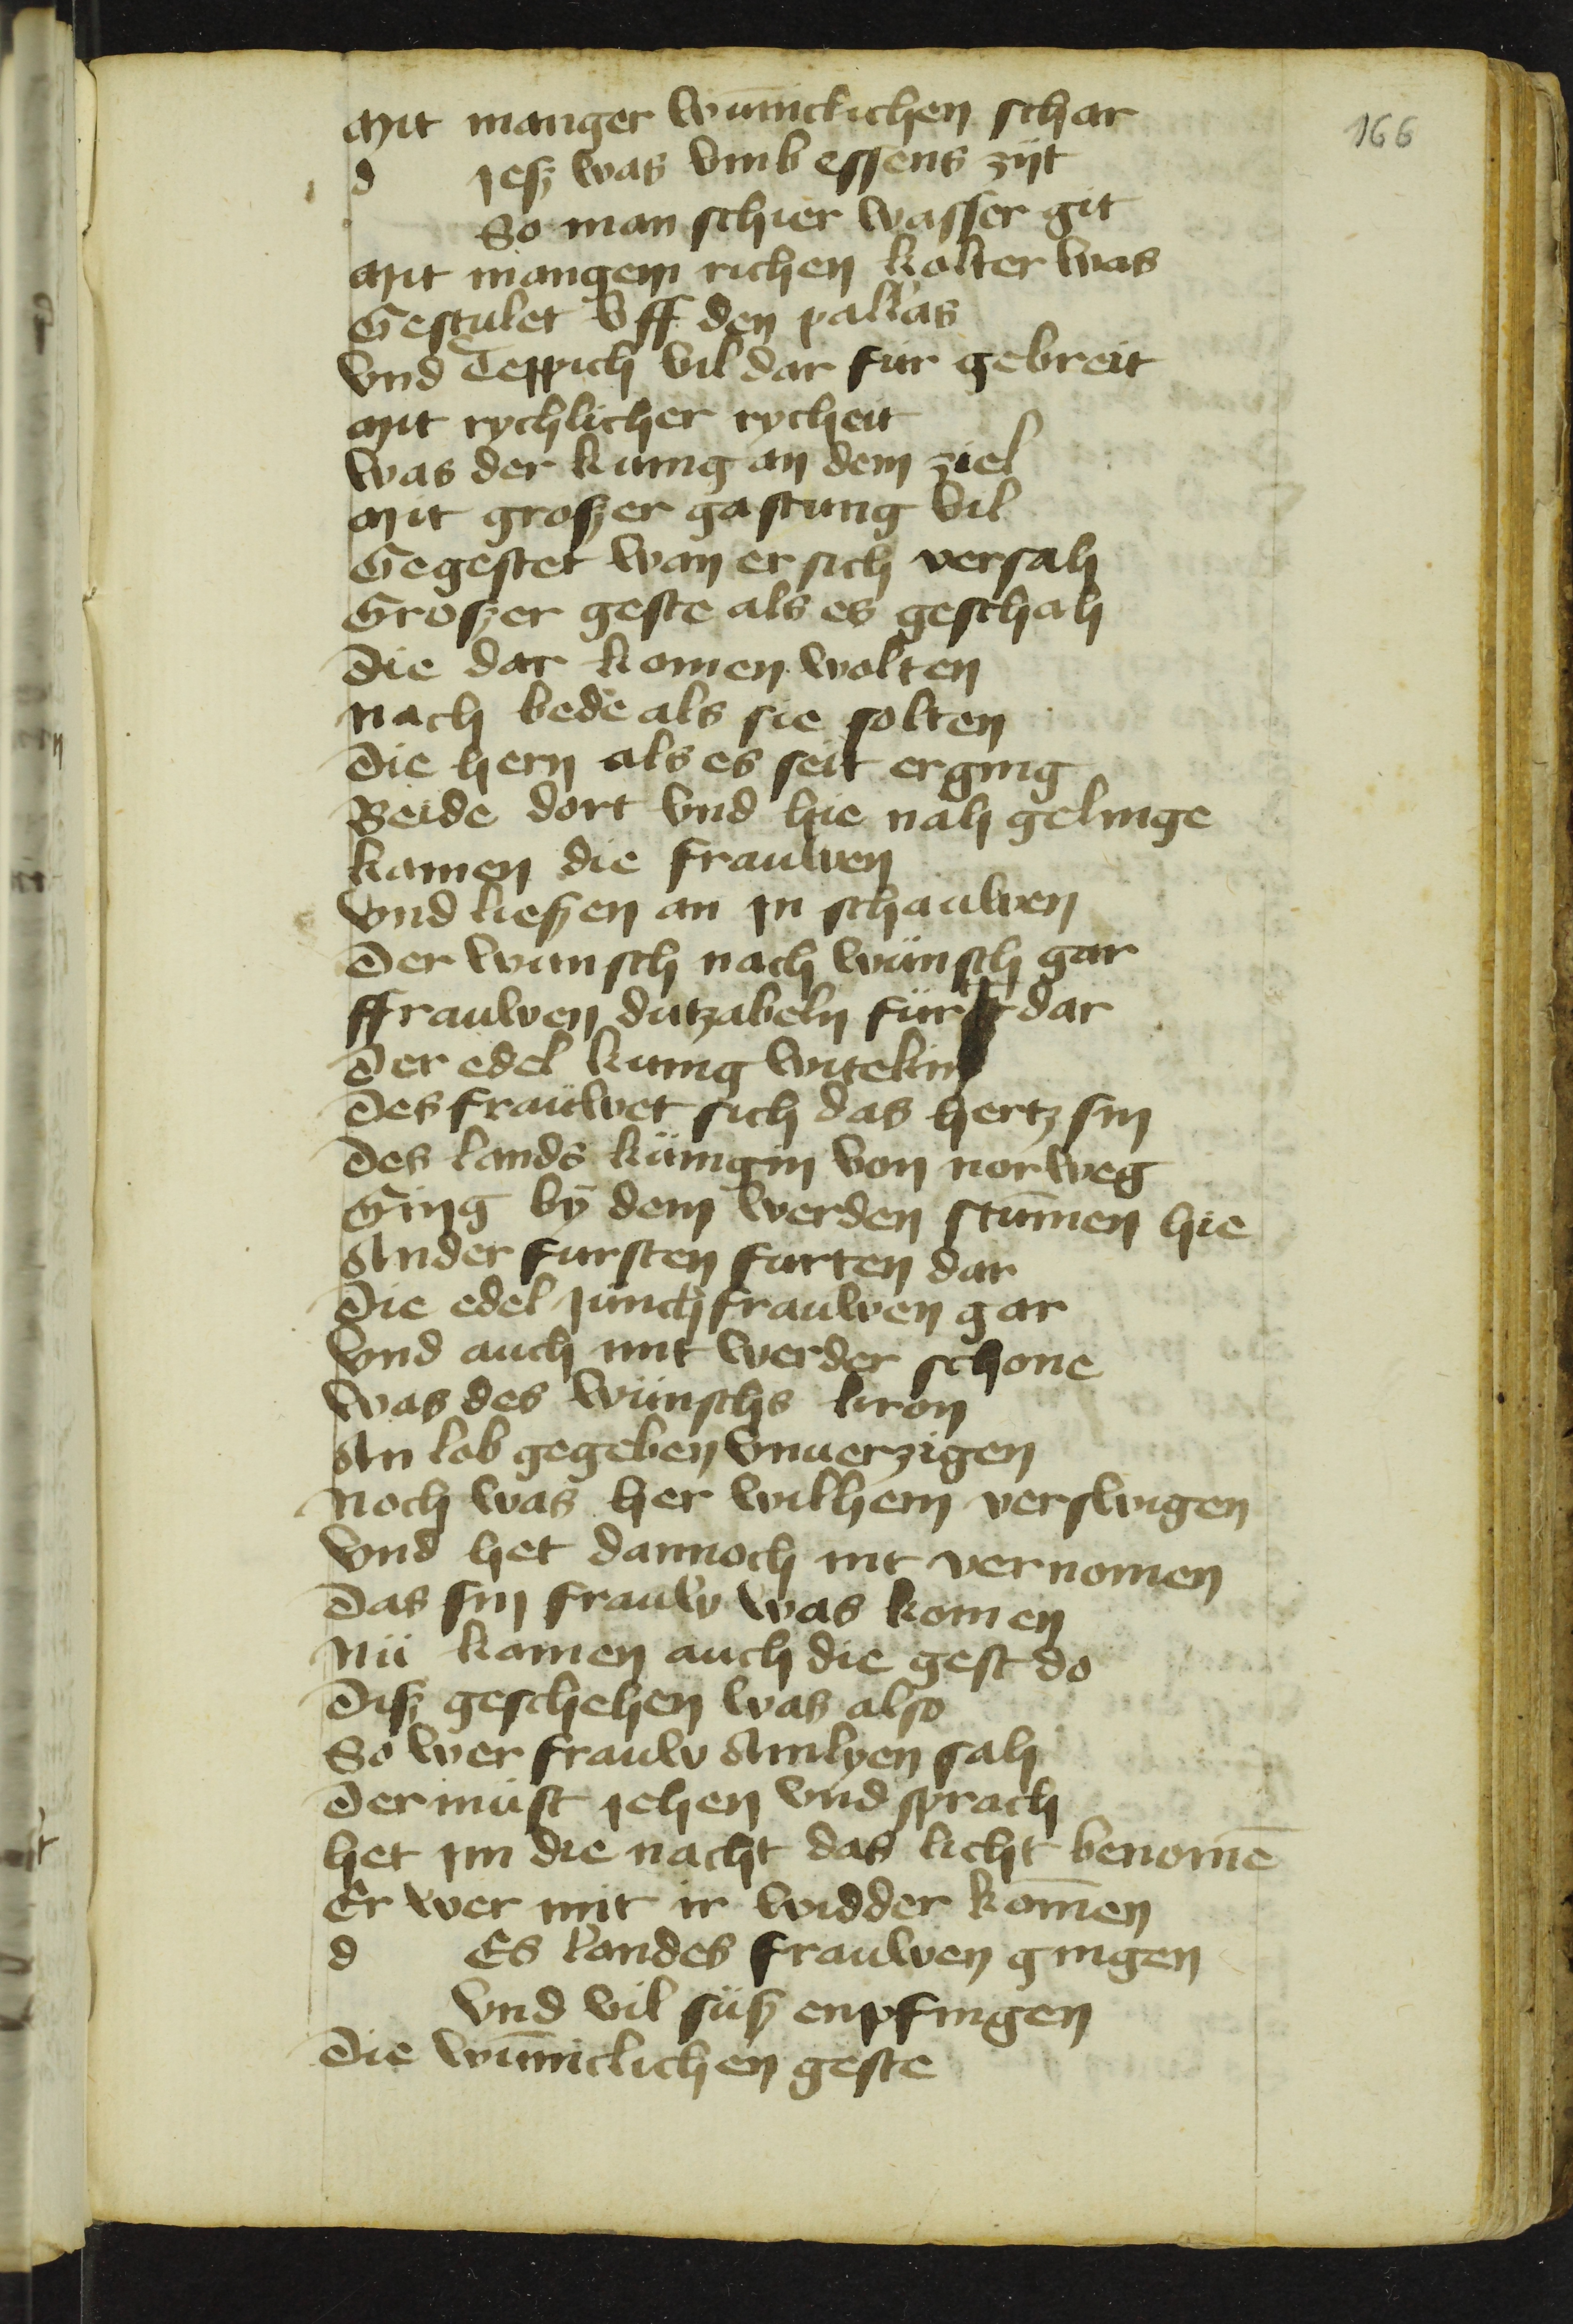 166
Mit manger wūnicklichen schar
d jesz was vmb essens zijt
So man schier wasser git
Mit mangem richen kolter was
Gestulet vff den pallas
Vnd Teppich vil dar fur gebreit
Mit rychlicher rycheit
Was der kunig an dem ziel
Mit groszer gastung vil
Gegestet wan er sich versah
Groszer geste als es geschah
Die dar komen wolten
Nach bede als sie solten
Die hern als es seit erging
Beide dort vnd hie nah gelinge
Kamen die frauwen
Vnd lieszen an jn schauwen
Der wunsch nach wünsch gar
Ffrauwen dutzabeln für dar
Der edel kunig witekin
Des fraüwet sich das hertz sin
Des lands künigin von norweg
Ging bÿ dem werden stūmen hie
Ander fursten furten dar
Die edel junckfrauwen gar
Vnd auch mit werder schone
Was des wünschs kron
An lob gegeben vnuerzigen
Noch was her wilhem verswigen
Vnd het dannoch nit vernomen
Das sin frauw was komen
Nü kamen auch die gest do
Disz geschehen was also
So wer frauw Amlyen sah
Der müst jehen vnd sprach
Het jm die nacht das licht benomē
Er wer mit ir widder kōmen
d Es landes frauwen gingen
Vnd vil süsz enpfingen
Die wūniclichen geste